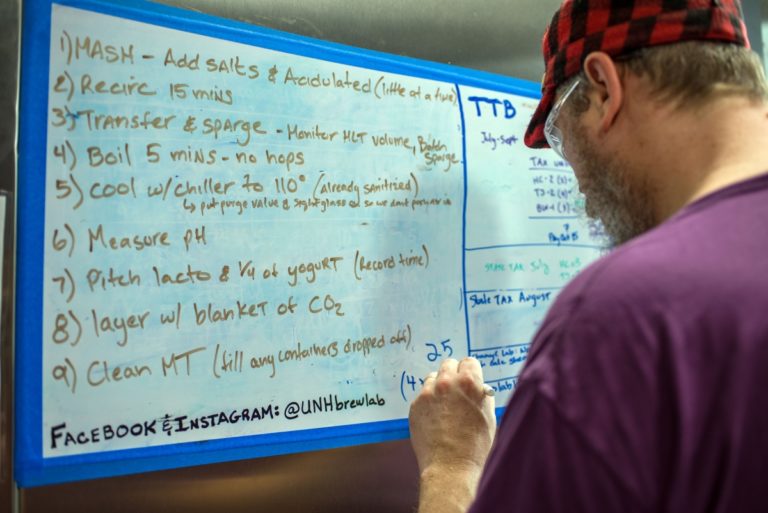 1) MASH - Add SAlts & Acidulated (little at a time)
2) Recirc 15 mins
3) Transfer & sparge - Monitor HLT volume, Batch
sparge
4) Boil 5 mins - no hops
5) Cool w/chiller to 110° (already sanitized)
↳ put purge valve & sightglass on so we dont purge air in
6) Measure pH
7) Pitch lacto & 1/4 of yogurt (Record time)
8) layer w/ blanket of CO2
9) Clean MT (fill any containers dropped off)
25
(4
FACEBOOK & INSTAGRAM: @UNHbrewlab
TTB
July-Sept
TAX
STATE TAX July
State TAX August